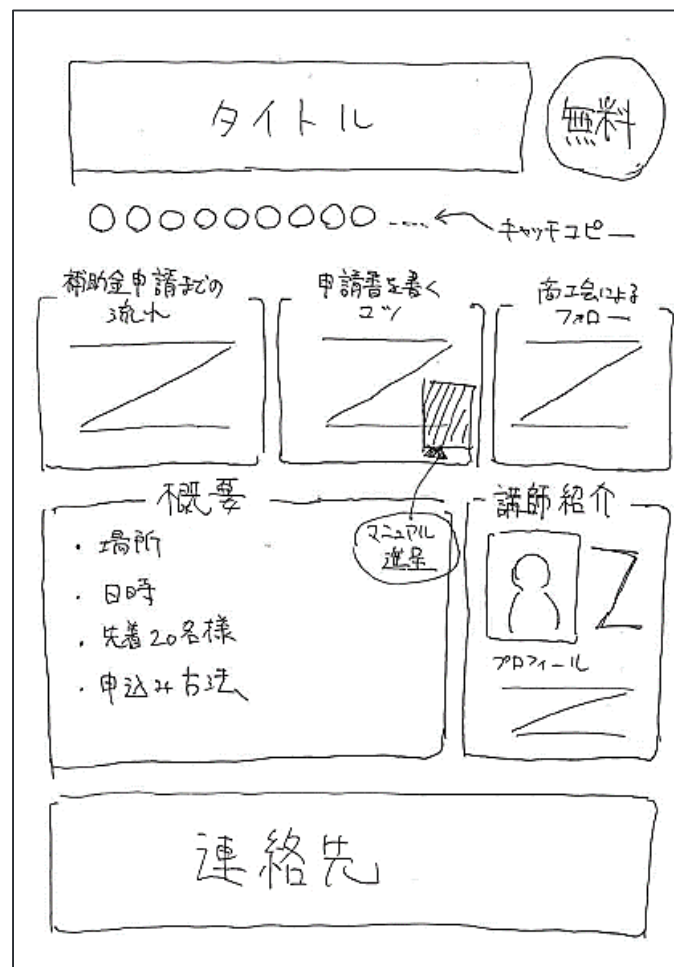 タイトル
無料
○○○○○○○○○……
キャッチコピー
補助金申請までの
流れ
申請書を書く
コツ
商工会による
フォロー
概要
・場所
・日時
・先着20名様
・申込み方法
マニュアル
進呈
講師紹介
プロフィール
連絡先